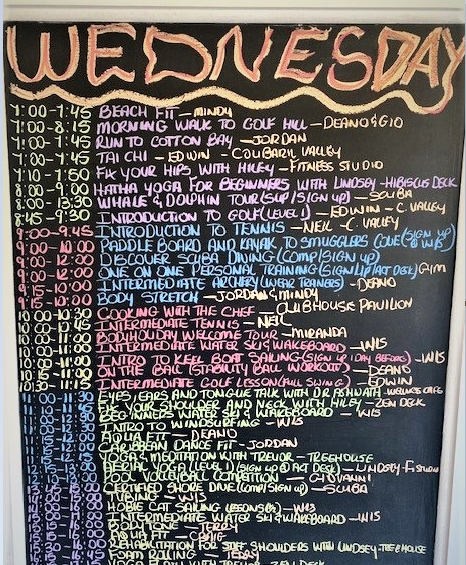 WEDNESDAY
7:00-7:45 BEACH FIT - MINDY
7:00-8:15 MORNING WALK TO GOLF HILL - DEANO & GIO
7:00-7:45 RUN TO COTTON BAY - JORDAN
7:00-7:45 TAI CHI - EDWIN - VALLEY
7:10-7:50 FIX YOUR HIPS WITH HILEY - FITNESS STUDIO
8:00-9:00 HATHA YOGA FOR BEGINNERS WITH LINDSEY - HIBISCUS DECK
8:00-13:30 WHALE & DOLPHIN TOUR ($UP/SIGN UP) - SCUBA
8:45-9:30 INTRODUCTION TO GOLF (LEVEL 1) - EDWIN - C. VALLEY
9:00-9:45 INTRODUCTION TO TENNIS - NEIL - C. VALLEY
9:00-10:00 PADDLE BOARD AND KAYAK TO SMUGGLERS COVE (SIGN UP @ W/S)
9:00-12:00 DISCOVER SCUBA DIVING (COMP/SIGN UP)
9:00- ONE ON ONE PERSONAL TRAINING (SIGN UP/AT DESK) GYM
9:15- INTERMEDIATE ARCHERY (WEAR TRAINERS) - DEANO
9:15-10:00 BODY STRETCH - JORDAN & MINDY
10:00-10:30 COOKING WITH THE CHEF - CLUBHOUSE PAVILION
10:00-10:45 INTERMEDIATE TENNIS - NEIL
10:00- BODYHOLIDAY WELCOME TOUR - MIRANDA
10:00-11:00 INTERMEDIATE WATER SKI & WAKEBOARD - W/S
INTRO TO KEEL BOAT SAILING (SIGN UP 1 DAY BEFORE) - W/S
ON THE BALL (STABILITY BALL WORKOUT) - DEANO
10:30-11:15 INTERMEDIATE GOLF LESSON (FULL SWING) - EDWIN
11:00-11:30 EYES, EARS AND TONGUE TALK WITH DR ASHWATH - WELLNESS
FIX YOUR SHOULDER AND NECK WITH HILEY - ZEN DECK
BEGINNERS WATER SKI & WAKEBOARD - W/S
INTRO TO WINDSURFING - W/S
AQUA FIT - DEANO
CARIBBEAN DANCE FIT - JORDAN
YOGA & MEDITATION WITH TREVOR - TREEHOUSE
AERIAL YOGA (LEVEL 1) (SIGN UP @ ACT DESK) - LINDSEY - F. STUDIO
POOL VOLLEYBALL COMPETITION - GIOVANNI
CERTIFIED SHORE DIVE (COMP/SIGN UP) - SCUBA
TUBING - W/S
HOBIE CAT SAILING LESSON - W/S
INTERMEDIATE WATER SKI & WAKEBOARD - W/S
- TERRY
AQUA FIT - CRAIG
15:30-16:00 REHABILITATION FOR STIFF SHOULDERS WITH LINDSEY - TREEHOUSE
FOAM ROLLING - TERRY
YOGA WITH TREVOR - ZEN DECK